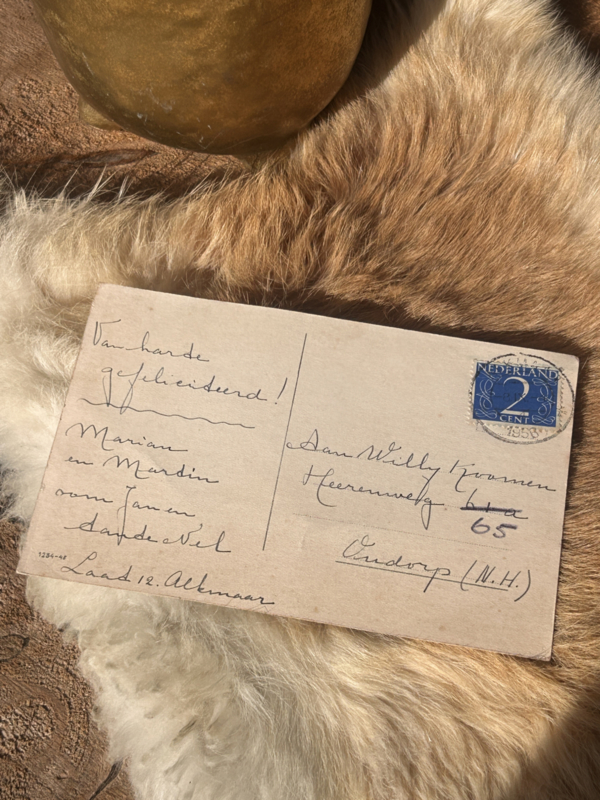 Van harte
gefeliciteerd!
Marian
en Martin
oom Jan en
tante Nel
Laad 12. Alkmaar
NEDERLAND
2
CENT
1953
Aan Willy Koomen
Heerenweg
65
Oudorp (N.H.)